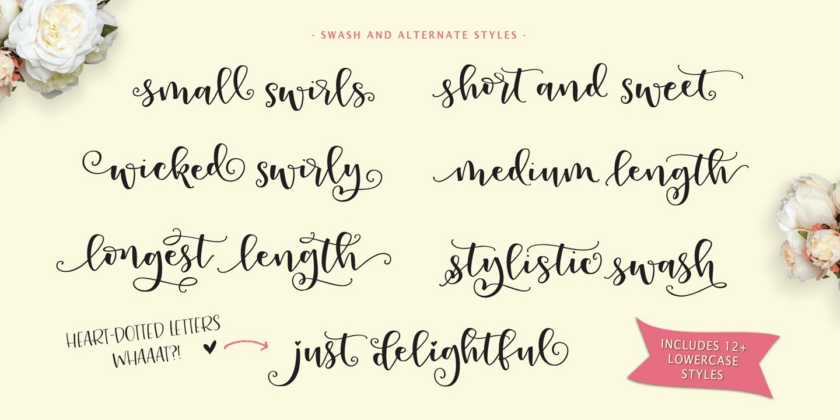 - SWASH AND ALTERNATE STYLES -
small swirls
short and sweet
wicked swirly
medium length
longest length
stylistic swash
HEART-DOTTED LETTERS
WHAAAT?!
just delightful
INCLUDES 12+
LOWERCASE
STYLES